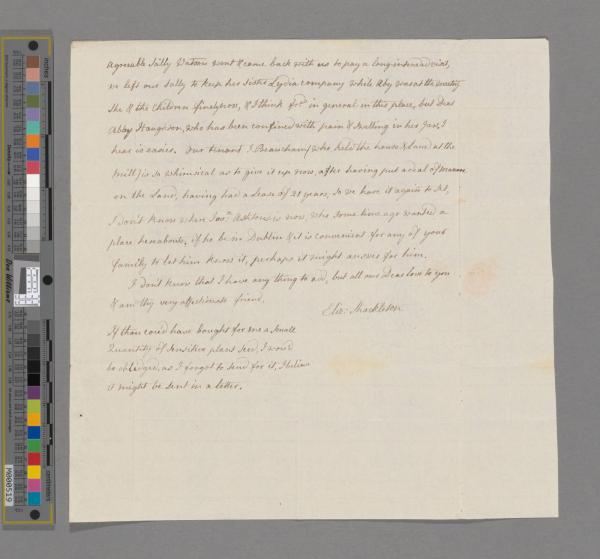 agreeable Sally Watson went & came back with us to pay a long intended visit,
we left our Sally to keep her sister Lydia company while Aby was at the meeting
She & the children finely now, & I think frds in general in this place, but Dear
Abby Haughton, who has been confined with pain & swelling in her Jaw, I
hear is easier. Our tenant J. Beauchamp (who held the house & Land at the
mill) is so whimsical as to give it up now, after having put a deal of manure
on the Land, having had a Lease of 21 years, so we have it again to set,
I don't know where Jon.n Ashton is now, who some time ago wanted a
place hereabouts, if he be in Dublin & it is convenient for any of your
family to let him know it, perhaps it might answer for him.
I don't know that I have any thing to add, but all our Dear love to you
& am thy very affectionate friend,
Eliz: Shackleton
If thou could have bought for me a Small
Quantity of Sensitive plant seed, I woud
be obliedged, as I forgot to send for it, I believe
it might be sent in a letter.
inches
centimetres
Don Williams
M000519